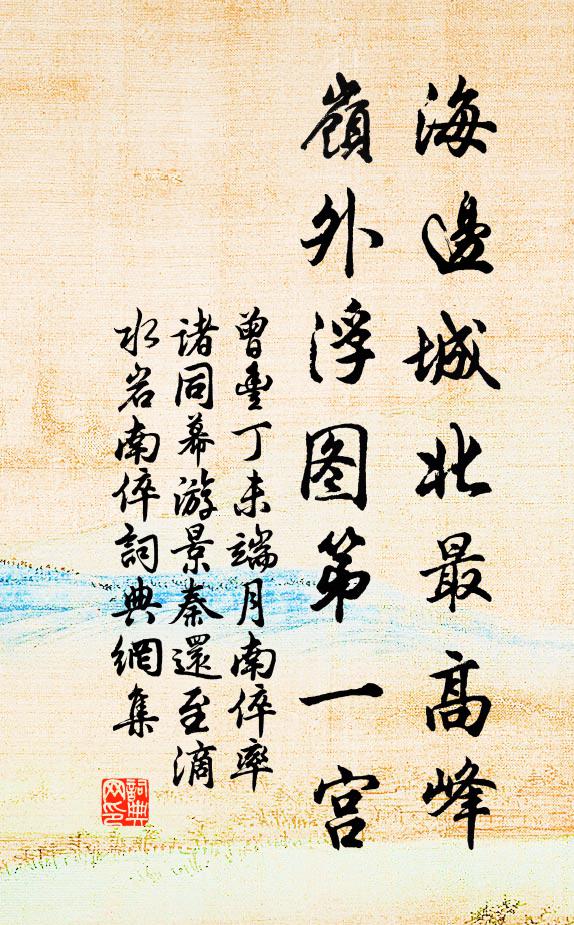 海邊城北最高峰
嶺外浮图第一宫
曾豊丁未端月南倅率
诸同幕游景泰還至滴
水岩南倅詞典網集
詞典
网印